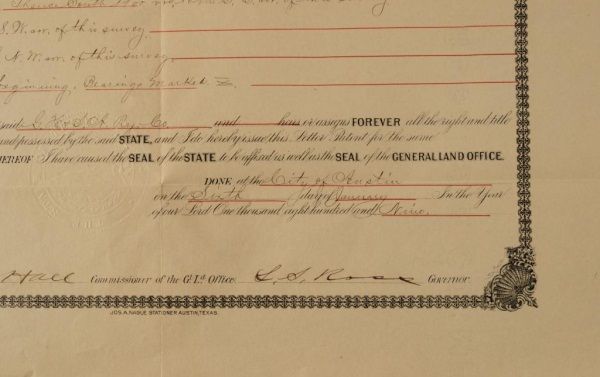 Thence South 1900 vrs.
S.W. cor. of this survey.
N.W. cor. of this survey,
beginning, Bearings Marked Z
said G. H. & S. A. Ry. Co. and heirs or assigns FOREVER all the right and title
and possessed by the said STATE, and I do hereby issue this Letter Patent for the same
HEREOF I have caused the SEAL of the STATE to be affixed as well as the SEAL of the GENERAL LAND OFFICE.
DONE at the City of Austin
on the Sixth day of January In the Year
of our Lord One thousand eight hundred and Nine.
Hall Commissioner of the Gl. Ld. Office. L. S. Ross Governor.
JOS. A. NAGLE STATIONER AUSTIN, TEXAS.